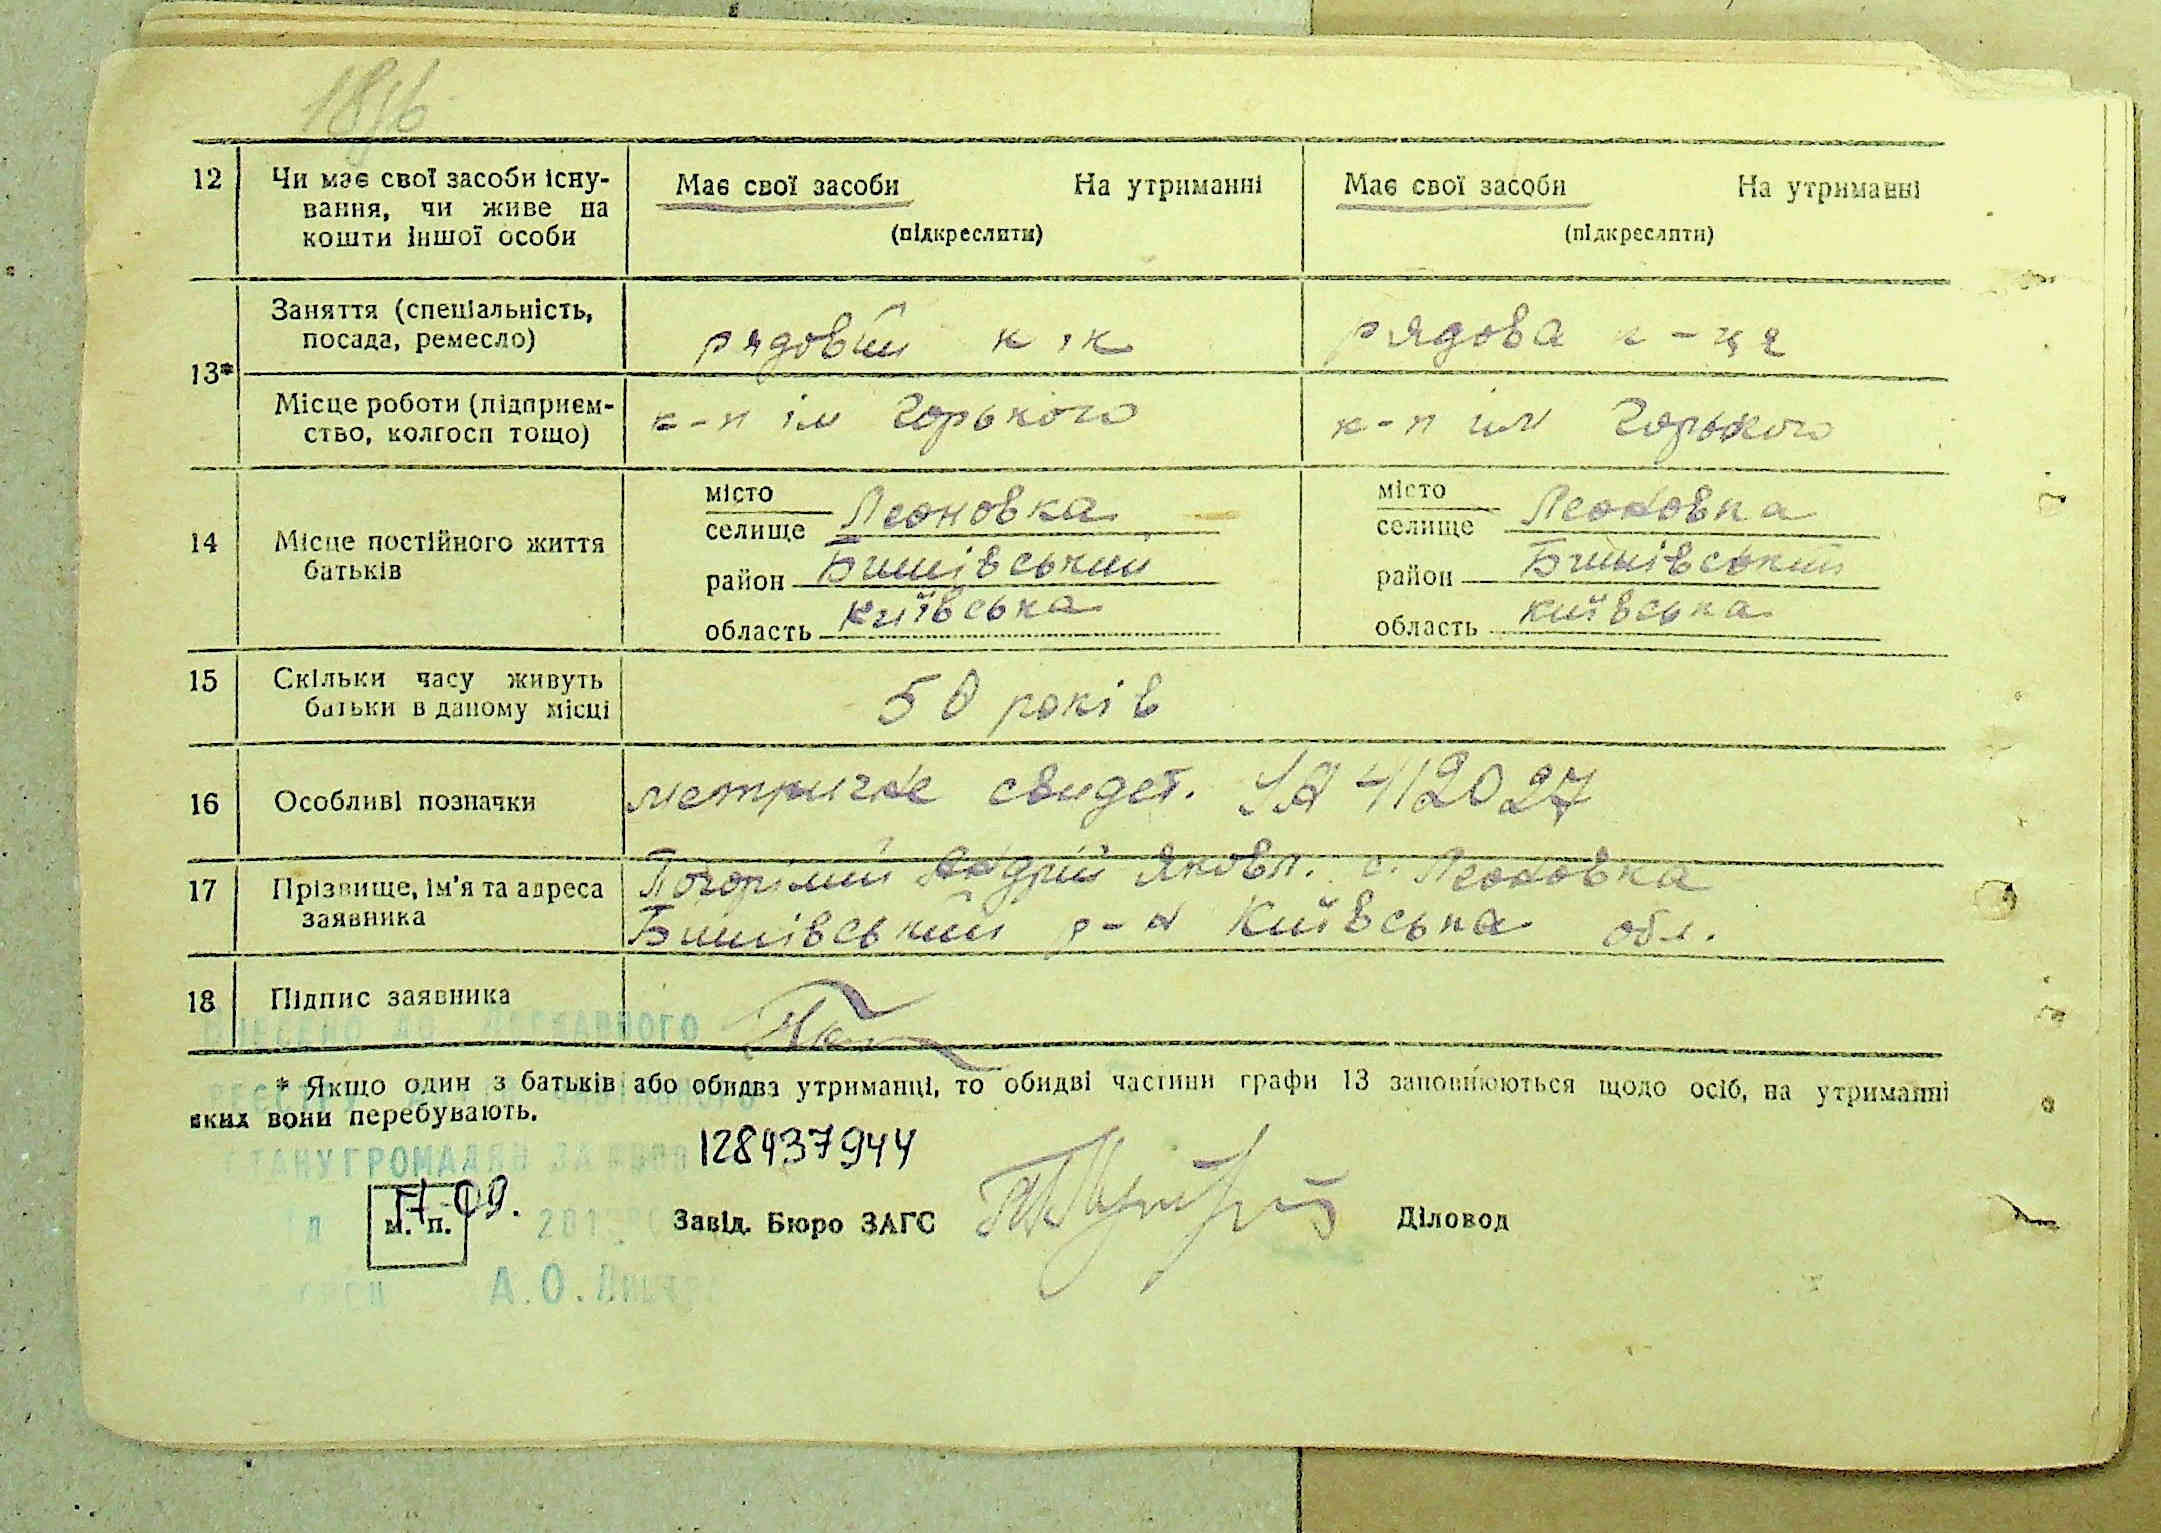 12 Чи має свої засоби існу- Має свої засоби На утриманні Має свої засоби На утриманні
вання, чи живе на
кошти іншої особи (підкреслити) (підкреслити)
Заняття (спеціальність, рядовий к-к рядова к-ця
посада, ремесло)
13*
Місце роботи (підприєм- к-п ім Горького к-п ім Горького
ство, колгосп тощо)
місто місто
селище Леоновка селище Леоновка
14 Місце постійного життя
батьків
район Бишівський район Бишівський
область київська область київська
15 Скільки часу живуть 50 років
батьки в даному місці
16 Особливі позначки метричне свидет. 412027
17 Прізвище, ім'я та адреса Погорілий Андрій Яковл. с. Леоновка
заявника Бишівський р-н Київська обл.
18 Підпис заявника
* Якщо один з батьків або обидва утриманці, то обидві частини графи 13 заповнюються щодо осіб, на утриманні
яких вони перебувають.
128437944
СТАНУ ГРОМАДЯН ЗА
17 09.
м. п. Завід. Бюро ЗАГС Діловод
А.О.